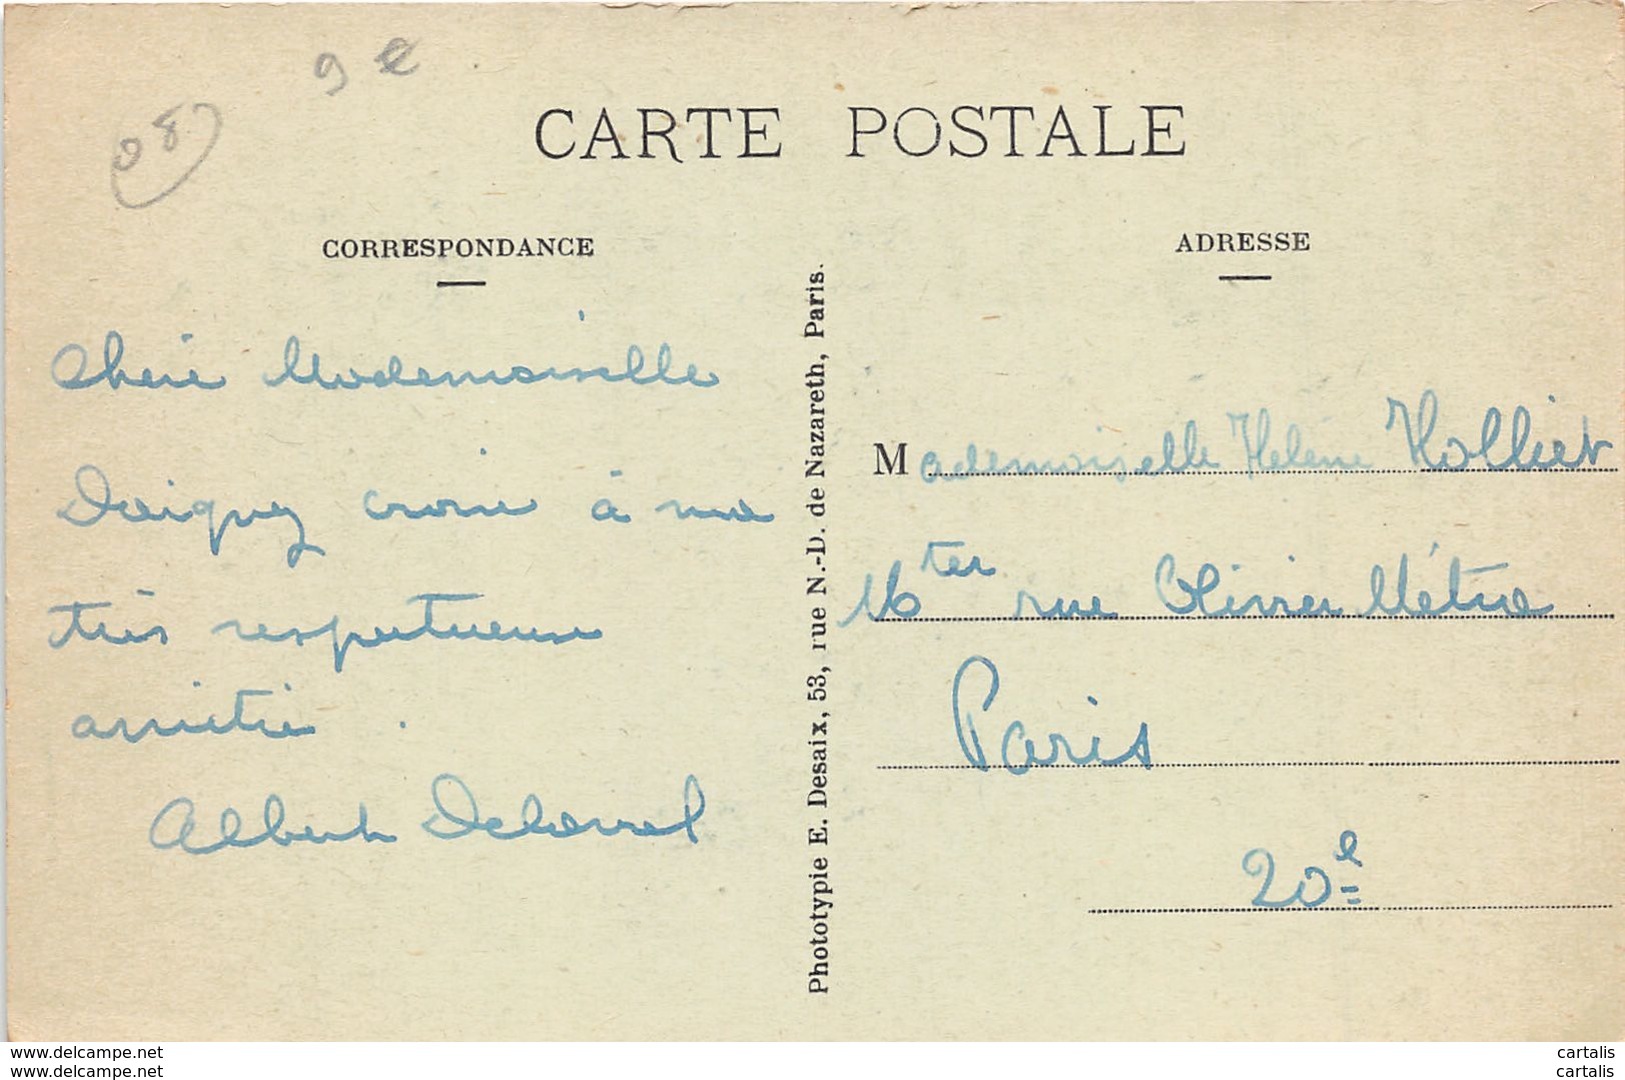 9 e
08
CARTE POSTALE
CORRESPONDANCE
Chère Mademoiselle
Daignez croire à ma
très respectueuse
amitié.
Albert
Phototypie E. Desaix, 53, rue N.-D. de Nazareth, Paris.
ADRESSE
Mademoiselle Helène Holliet
16 ter rue Olivier Métra
Paris
20e
www.delcampe.net
www.delcampe.net
cartalis
cartalis